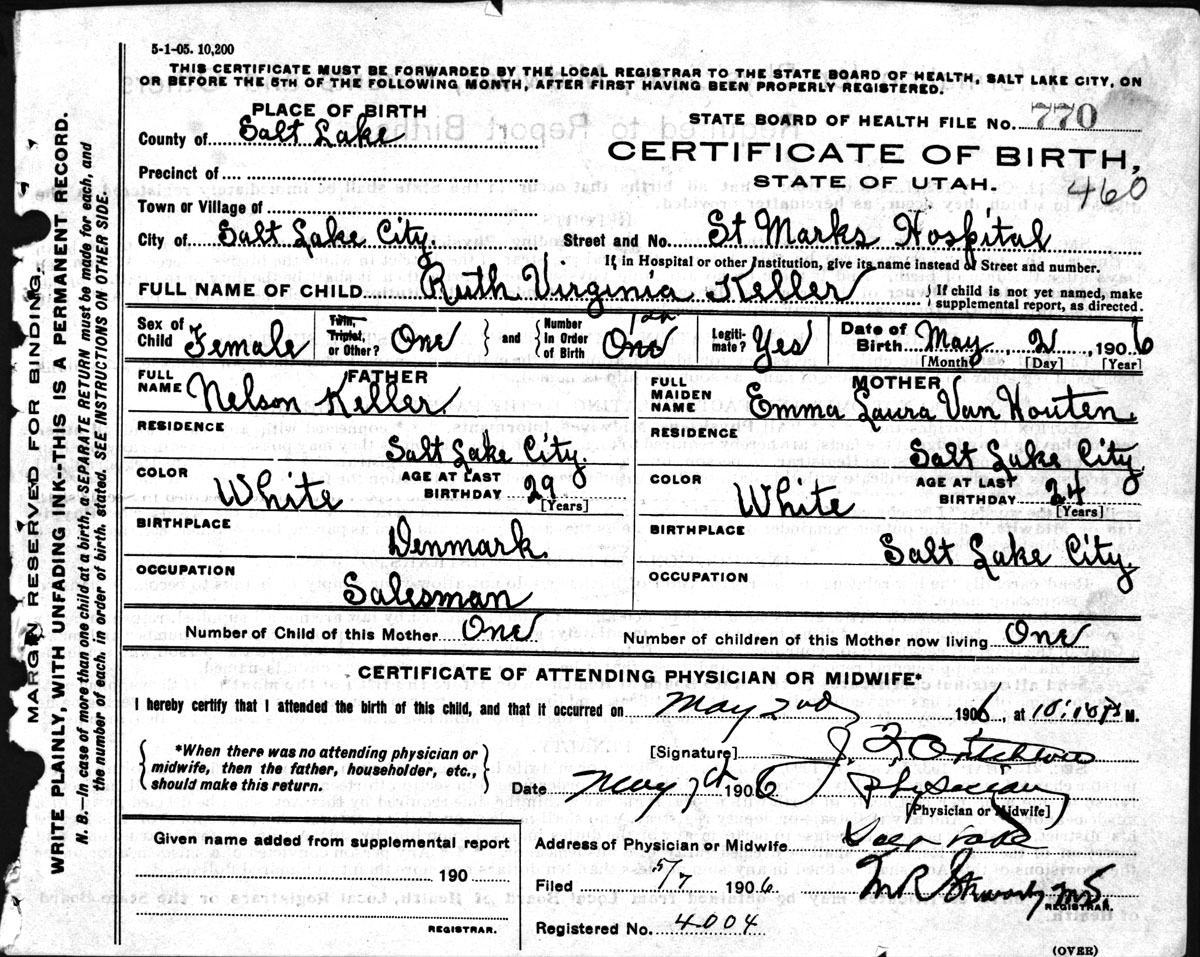 5-1-05. 10,200
THIS CERTIFICATE MUST BE FORWARDED BY THE LOCAL REGISTRAR TO THE STATE BOARD OF HEALTH, SALT LAKE CITY, ON
OR BEFORE THE 5TH OF THE FOLLOWING MONTH, AFTER FIRST HAVING BEEN PROPERLY REGISTERED.
PLACE OF BIRTH
STATE BOARD OF HEALTH FILE No. 770
County of Salt Lake
CERTIFICATE OF BIRTH,
Precinct of
STATE OF UTAH.
460
Town or Village of
City of Salt Lake City. Street and No. St Marks Hospital
If in Hospital or other Institution, give its name instead of Street and number.
FULL NAME OF CHILD Ruth Virginia Keller
If child is not yet named, make
supplemental report, as directed.
Sex of Child Female
Twin, Triplet, or Other? One and Number In Order of Birth One
Legitimate? Yes
Date of Birth May 2, 1906
[Month] [Day] [Year]
FATHER
FULL NAME Nelson Keller.
MOTHER
FULL MAIDEN NAME Emma Laura Van Houten.
RESIDENCE Salt Lake City.
RESIDENCE Salt Lake City.
COLOR White AGE AT LAST BIRTHDAY 29 [Years]
COLOR White AGE AT LAST BIRTHDAY 24 [Years]
BIRTHPLACE Denmark.
BIRTHPLACE Salt Lake City.
OCCUPATION Salesman
OCCUPATION
Number of Child of this Mother One
Number of children of this Mother now living One
CERTIFICATE OF ATTENDING PHYSICIAN OR MIDWIFE*
I hereby certify that I attended the birth of this child, and that it occurred on May 2nd 1906, at 10:10 P M.
*When there was no attending physician or
midwife, then the father, householder, etc.,
should make this return.
[Signature]
Date May 7th 1906 Physician
[Physician or Midwife]
Given name added from supplemental report
190
REGISTRAR.
Address of Physician or Midwife
Filed 5/7 1906
REGISTRAR.
Registered No. 4004
(OVER)
MARGIN RESERVED FOR BINDING.
WRITE PLAINLY, WITH UNFADING INK--THIS IS A PERMANENT RECORD.
N. B.—In case of more than one child at a birth, a SEPARATE RETURN must be made for each, and
the number of each, in order of birth, stated. SEE INSTRUCTIONS ON OTHER SIDE.